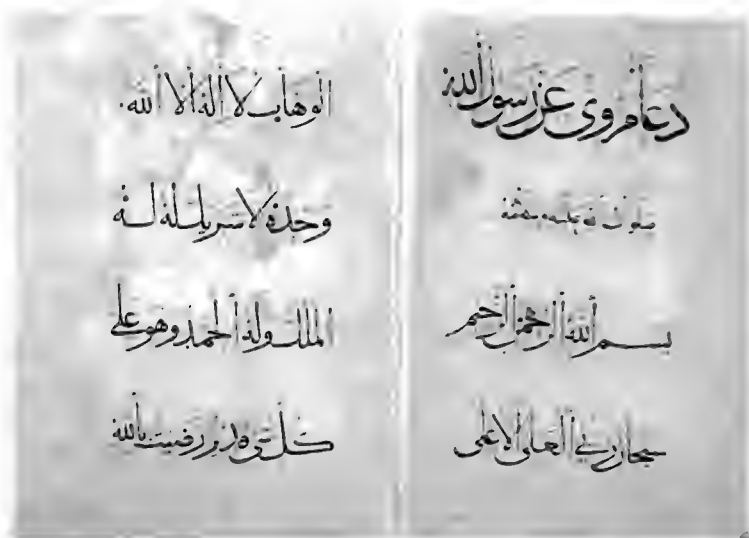 دعا مروى عن رسول الله
صلوات الله عليه
بسم الله الرحمن الرحيم
سبحان ربي العلي الاعلى
الوهاب لا اله الا الله
وحده لا شريك له له
الملك وله الحمد وهو على
كل شيء قدير رضيت بالله